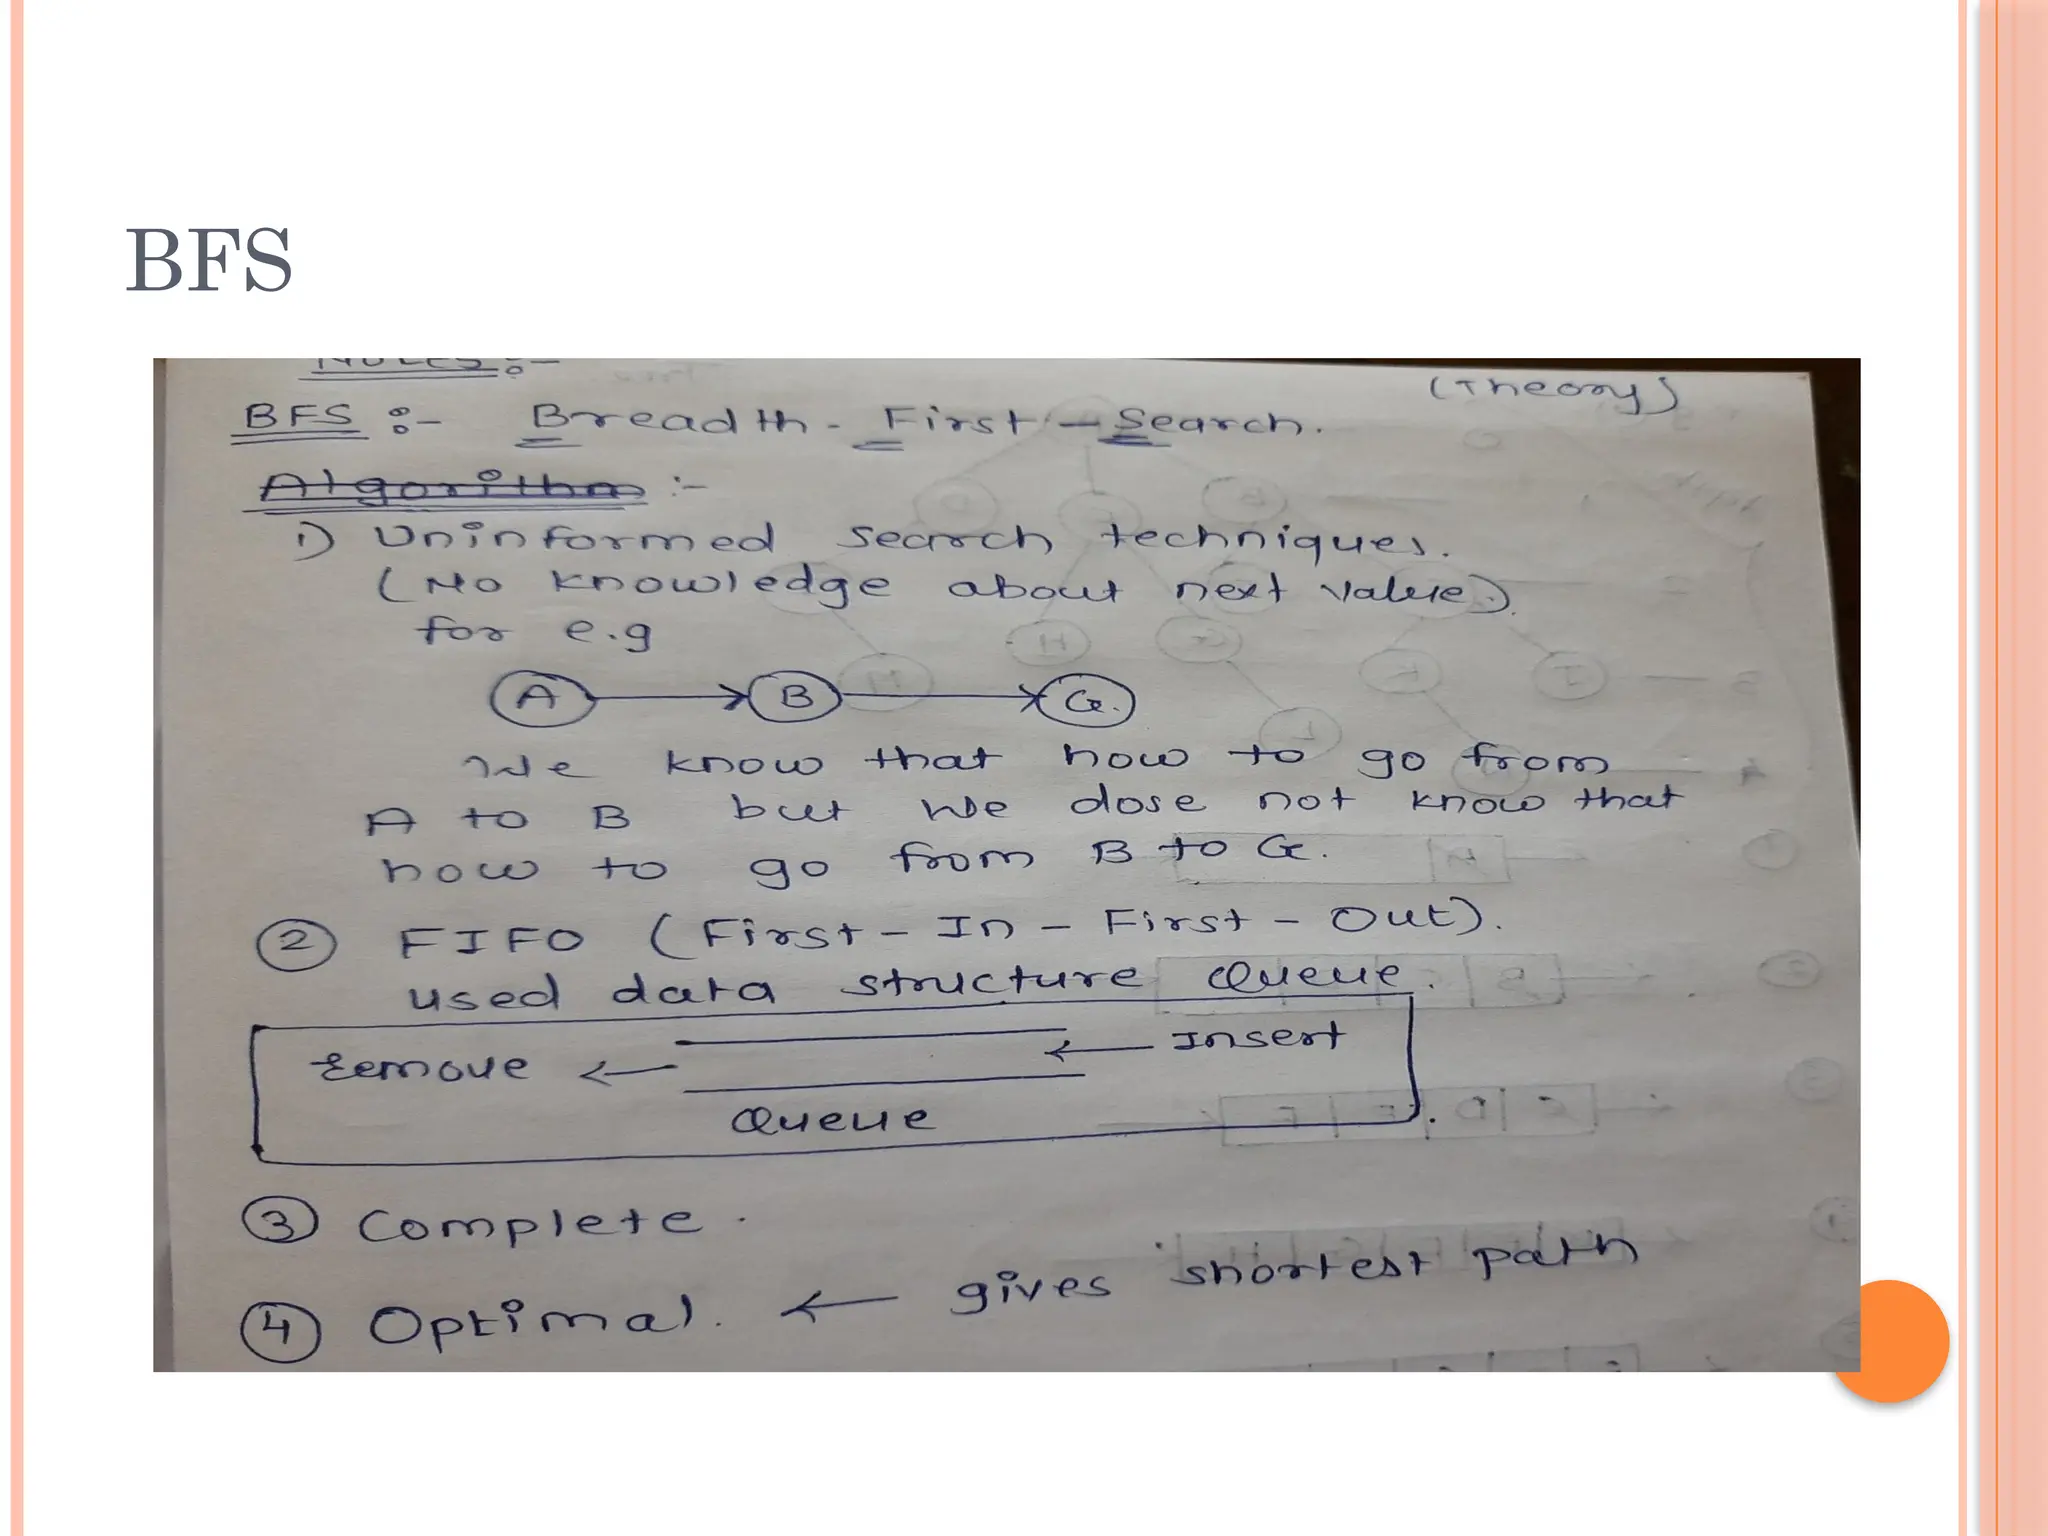 BFS
(Theory)
BFS :- Breadth - First - Search.
Algorithm :-
1) Uninformed search techniques.
(No knowledge about next value.).
for e.g
A B G.
We know that how to go from
A to B but We dose not know that
how to go from B to G.
2 FIFO (First - In - First - Out).
used data structure Queue.
Remove ← ← Insert
Queue
3 Complete.
4 Optimal. ← gives shortest path